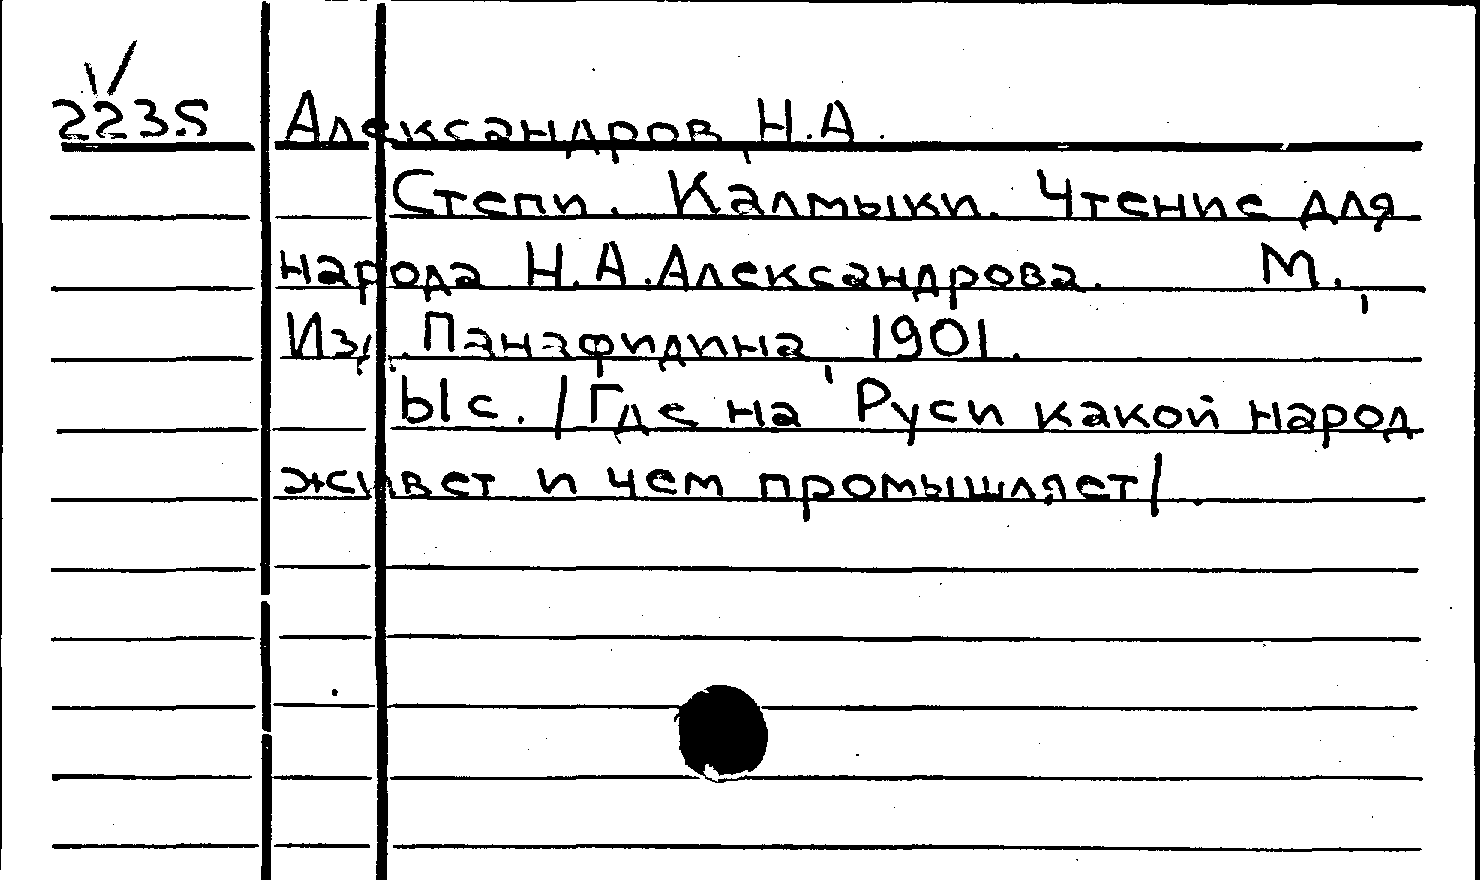 2235 Александров, Н.А.
Степи. Калмыки. Чтение для
народа Н.А.Александрова. М.,
Изд. Панафидина, 1901.
61с. /Где на Руси какой народ
живет и чем промышляет/.